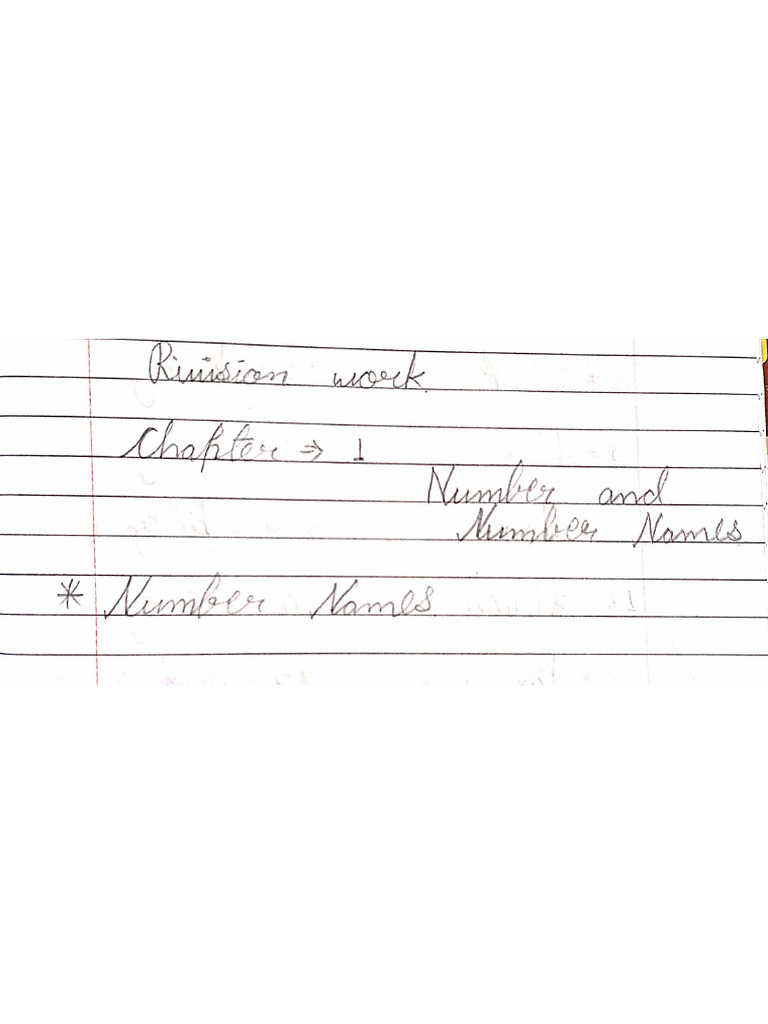 Rivision work
Chapter ⇒ 1
Number and
Number Names
* Number Names